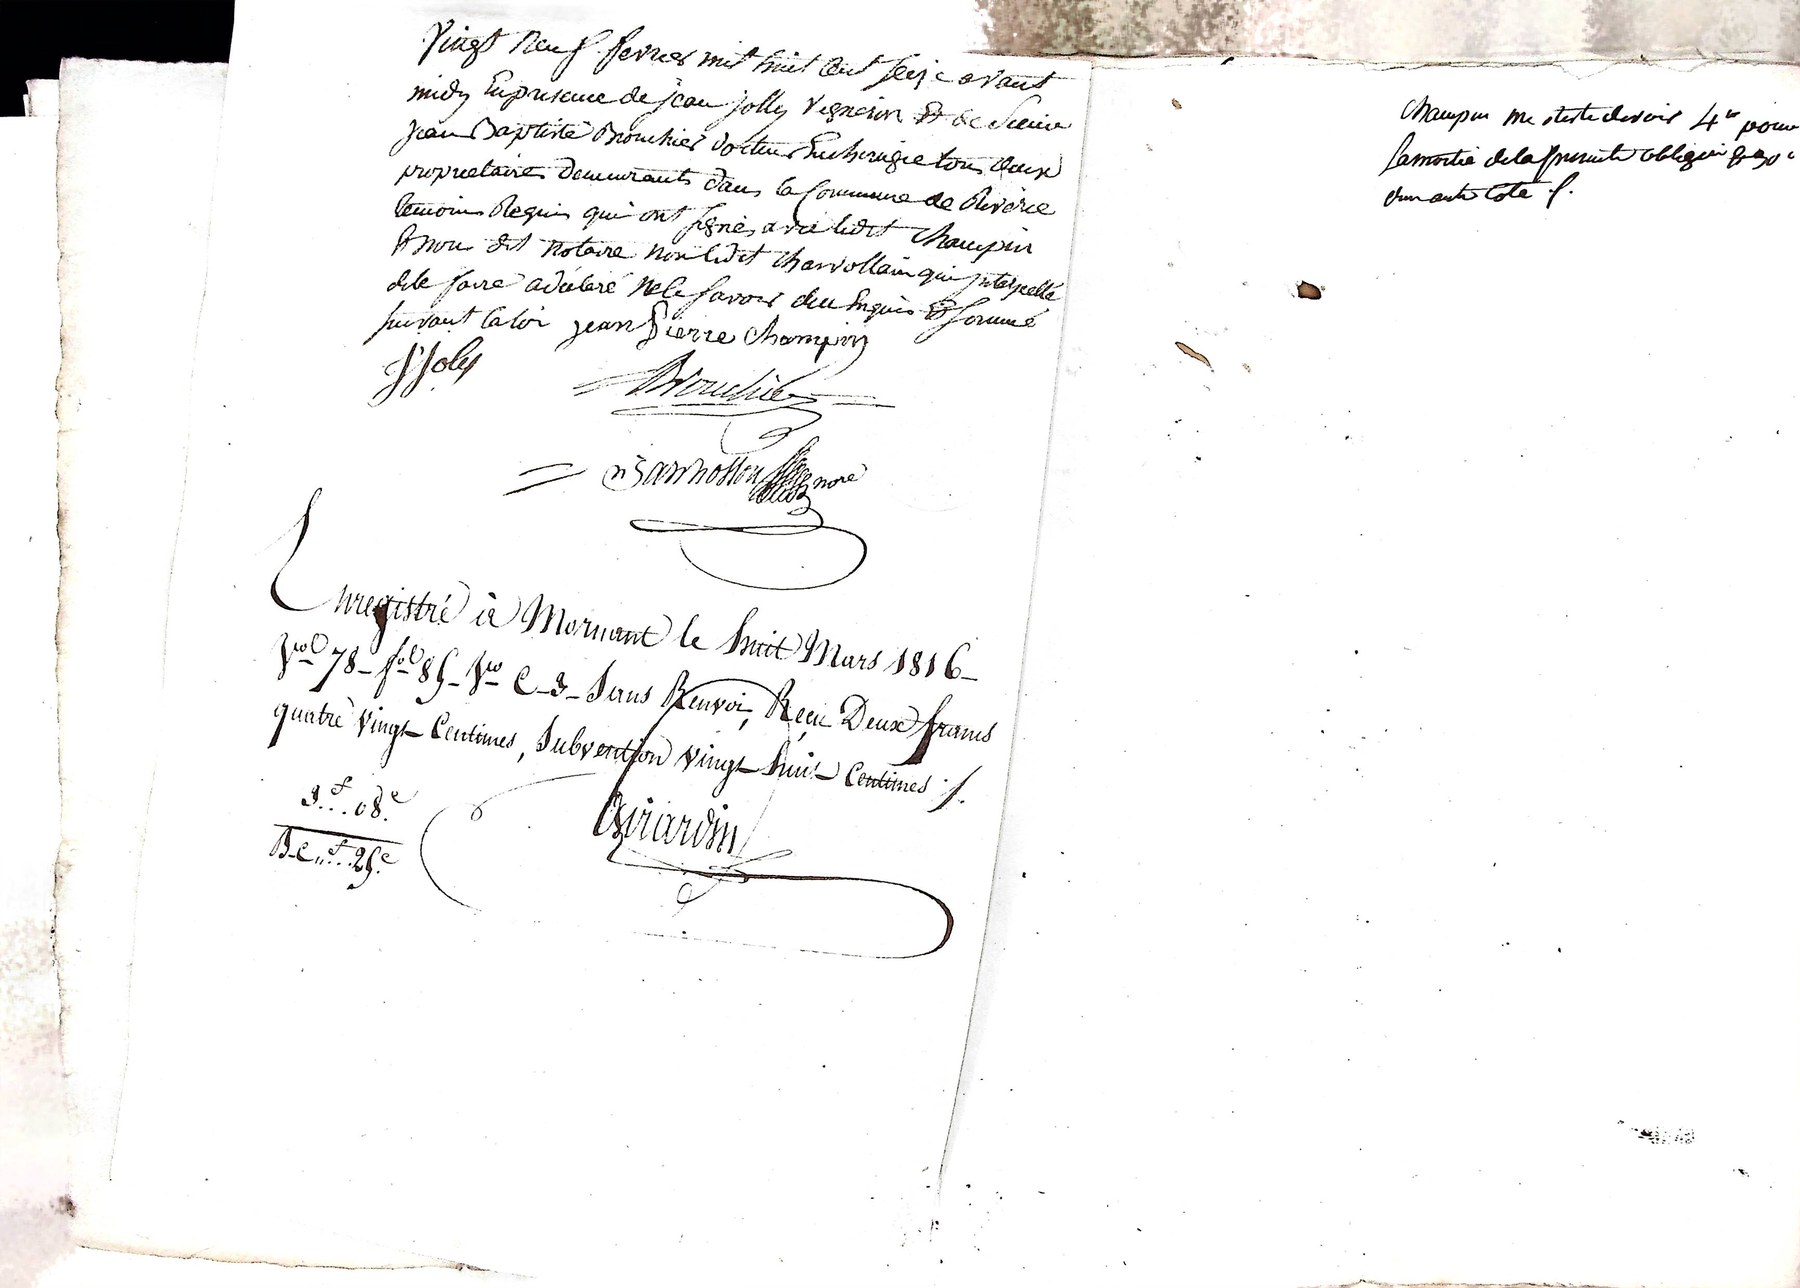 Vingt neuf fevrier mil huit cent seize avant
midy En presence de jean jolly vigneron & de Sieur
jean Baptiste Brouchier docteur En chirugie tous deux
proprietaires demeurants dans la Commune de Riverie
temoins Requis qui ont signés avec ledit Champin
& nou dit notaire non ledit Charvollain qui jnterpellé
de le faire a déclaré ne le savoir deu Enquis & sommé
suivant la loi jean Pierre Champin
J Joly
Brouchier
nore
Enregistré à Mornant le huit Mars 1816
Vol 78 fol 85 Vro C 3 Sans Renvoi, Reçu Deux francs
quatre vingt Centimes, Subvention vingt huit Centimes
3f..08c.
B.C..f..25c.
Girardin
Champin me reste devoir 4 pour
la moitié de la presente obligon
d'un autre coté